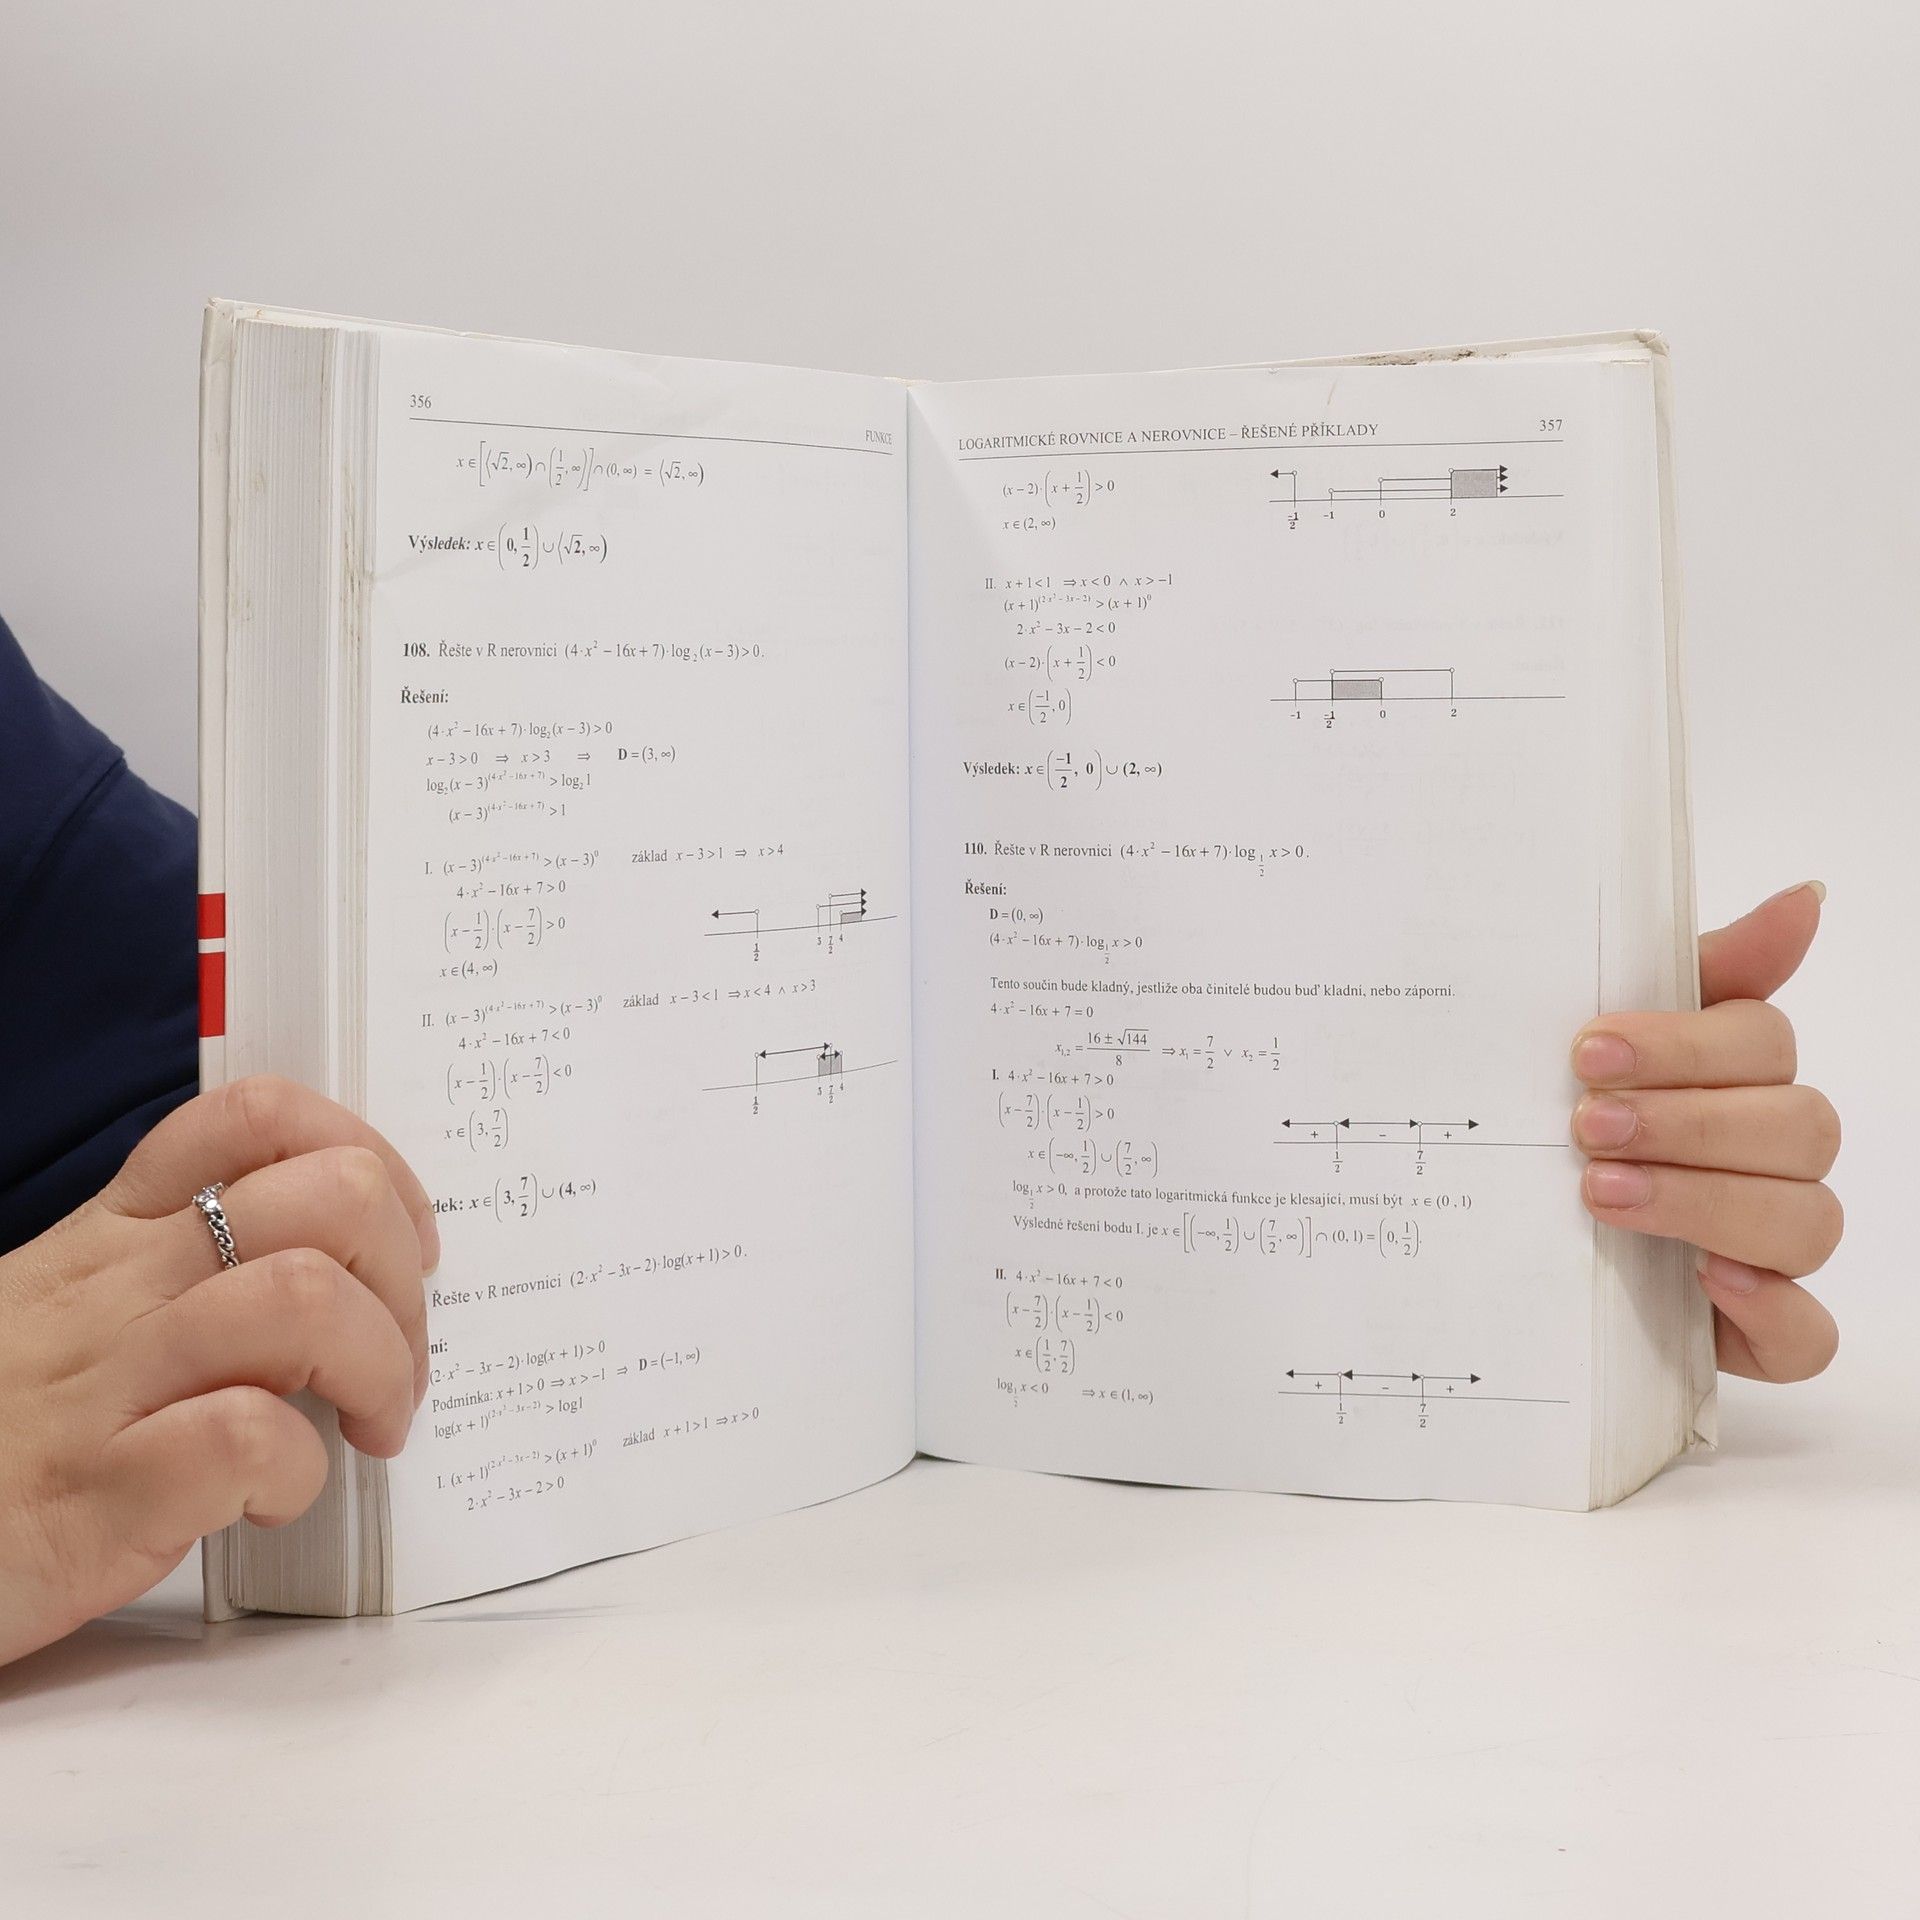 356
FUNKCE
x ∈ [⟨√2, ∞) ∩ (1/2, ∞)] ∩ (0, ∞) = ⟨√2, ∞)
Výsledek: x ∈ (0, 1/2) ∪ ⟨√2, ∞)
108. Řešte v R nerovnici (4·x² − 16x + 7)·log₂(x − 3) > 0.
Řešení:
(4·x² − 16x + 7)·log₂(x − 3) > 0
x − 3 > 0 ⇒ x > 3 ⇒ D = (3, ∞)
log₂(x − 3)^(4·x² − 16x + 7) > log₂1
(x − 3)^(4·x² − 16x + 7) > 1
I. (x − 3)^(4·x² − 16x + 7) > (x − 3)⁰ základ x − 3 > 1 ⇒ x > 4
4·x² − 16x + 7 > 0
(x − 1/2)·(x − 7/2) > 0
1/2 3 7/2 4
x ∈ (4, ∞)
II. (x − 3)^(4·x² − 16x + 7) > (x − 3)⁰ základ x − 3 < 1 ⇒ x < 4 ∧ x > 3
4·x² − 16x + 7 < 0
(x − 1/2)·(x − 7/2) < 0
1/2 3 7/2 4
x ∈ (3, 7/2)
dek: x ∈ (3, 7/2) ∪ (4, ∞)
Řešte v R nerovnici (2·x² − 3x − 2)·log(x + 1) > 0.
ní:
(2·x² − 3x − 2)·log(x + 1) > 0
Podmínka: x + 1 > 0 ⇒ x > −1 ⇒ D = (−1, ∞)
log(x + 1)^(2·x² − 3x − 2) > log1
I. (x + 1)^(2·x² − 3x − 2) > (x + 1)⁰ základ x + 1 > 1 ⇒ x > 0
2·x² − 3x − 2 > 0
LOGARITMICKÉ ROVNICE A NEROVNICE – ŘEŠENÉ PŘÍKLADY 357
(x − 2)·(x + 1/2) > 0
−1/2 −1 0 2
x ∈ (2, ∞)
II. x + 1 < 1 ⇒ x < 0 ∧ x > −1
(x + 1)^(2·x² − 3x − 2) > (x + 1)⁰
2·x² − 3x − 2 < 0
(x − 2)·(x + 1/2) < 0
x ∈ (−1/2, 0)
−1 −1/2 0 2
Výsledek: x ∈ (−1/2, 0) ∪ (2, ∞)
110. Řešte v R nerovnici (4·x² − 16x + 7)·log_1/2 x > 0.
Řešení:
D = (0, ∞)
(4·x² − 16x + 7)·log_1/2 x > 0
Tento součin bude kladný, jestliže oba činitelé budou buď kladní, nebo záporní.
4·x² − 16x + 7 = 0
x₁,₂ = (16 ± √144)/8 ⇒ x₁ = 7/2 ∨ x₂ = 1/2
I. 4·x² − 16x + 7 > 0
(x − 7/2)·(x − 1/2) > 0
+ − +
x ∈ (−∞, 1/2) ∪ (7/2, ∞)
1/2 7/2
log_1/2 x > 0, a protože tato logaritmická funkce je klesající, musí být x ∈ (0, 1)
Výsledné řešení bodu I. je x ∈ [(−∞, 1/2) ∪ (7/2, ∞)] ∩ (0, 1) = (0, 1/2).
II. 4·x² − 16x + 7 < 0
(x − 7/2)·(x − 1/2) < 0
x ∈ (1/2, 7/2)
+ − +
log_1/2 x < 0 ⇒ x ∈ (1, ∞)
1/2 7/2